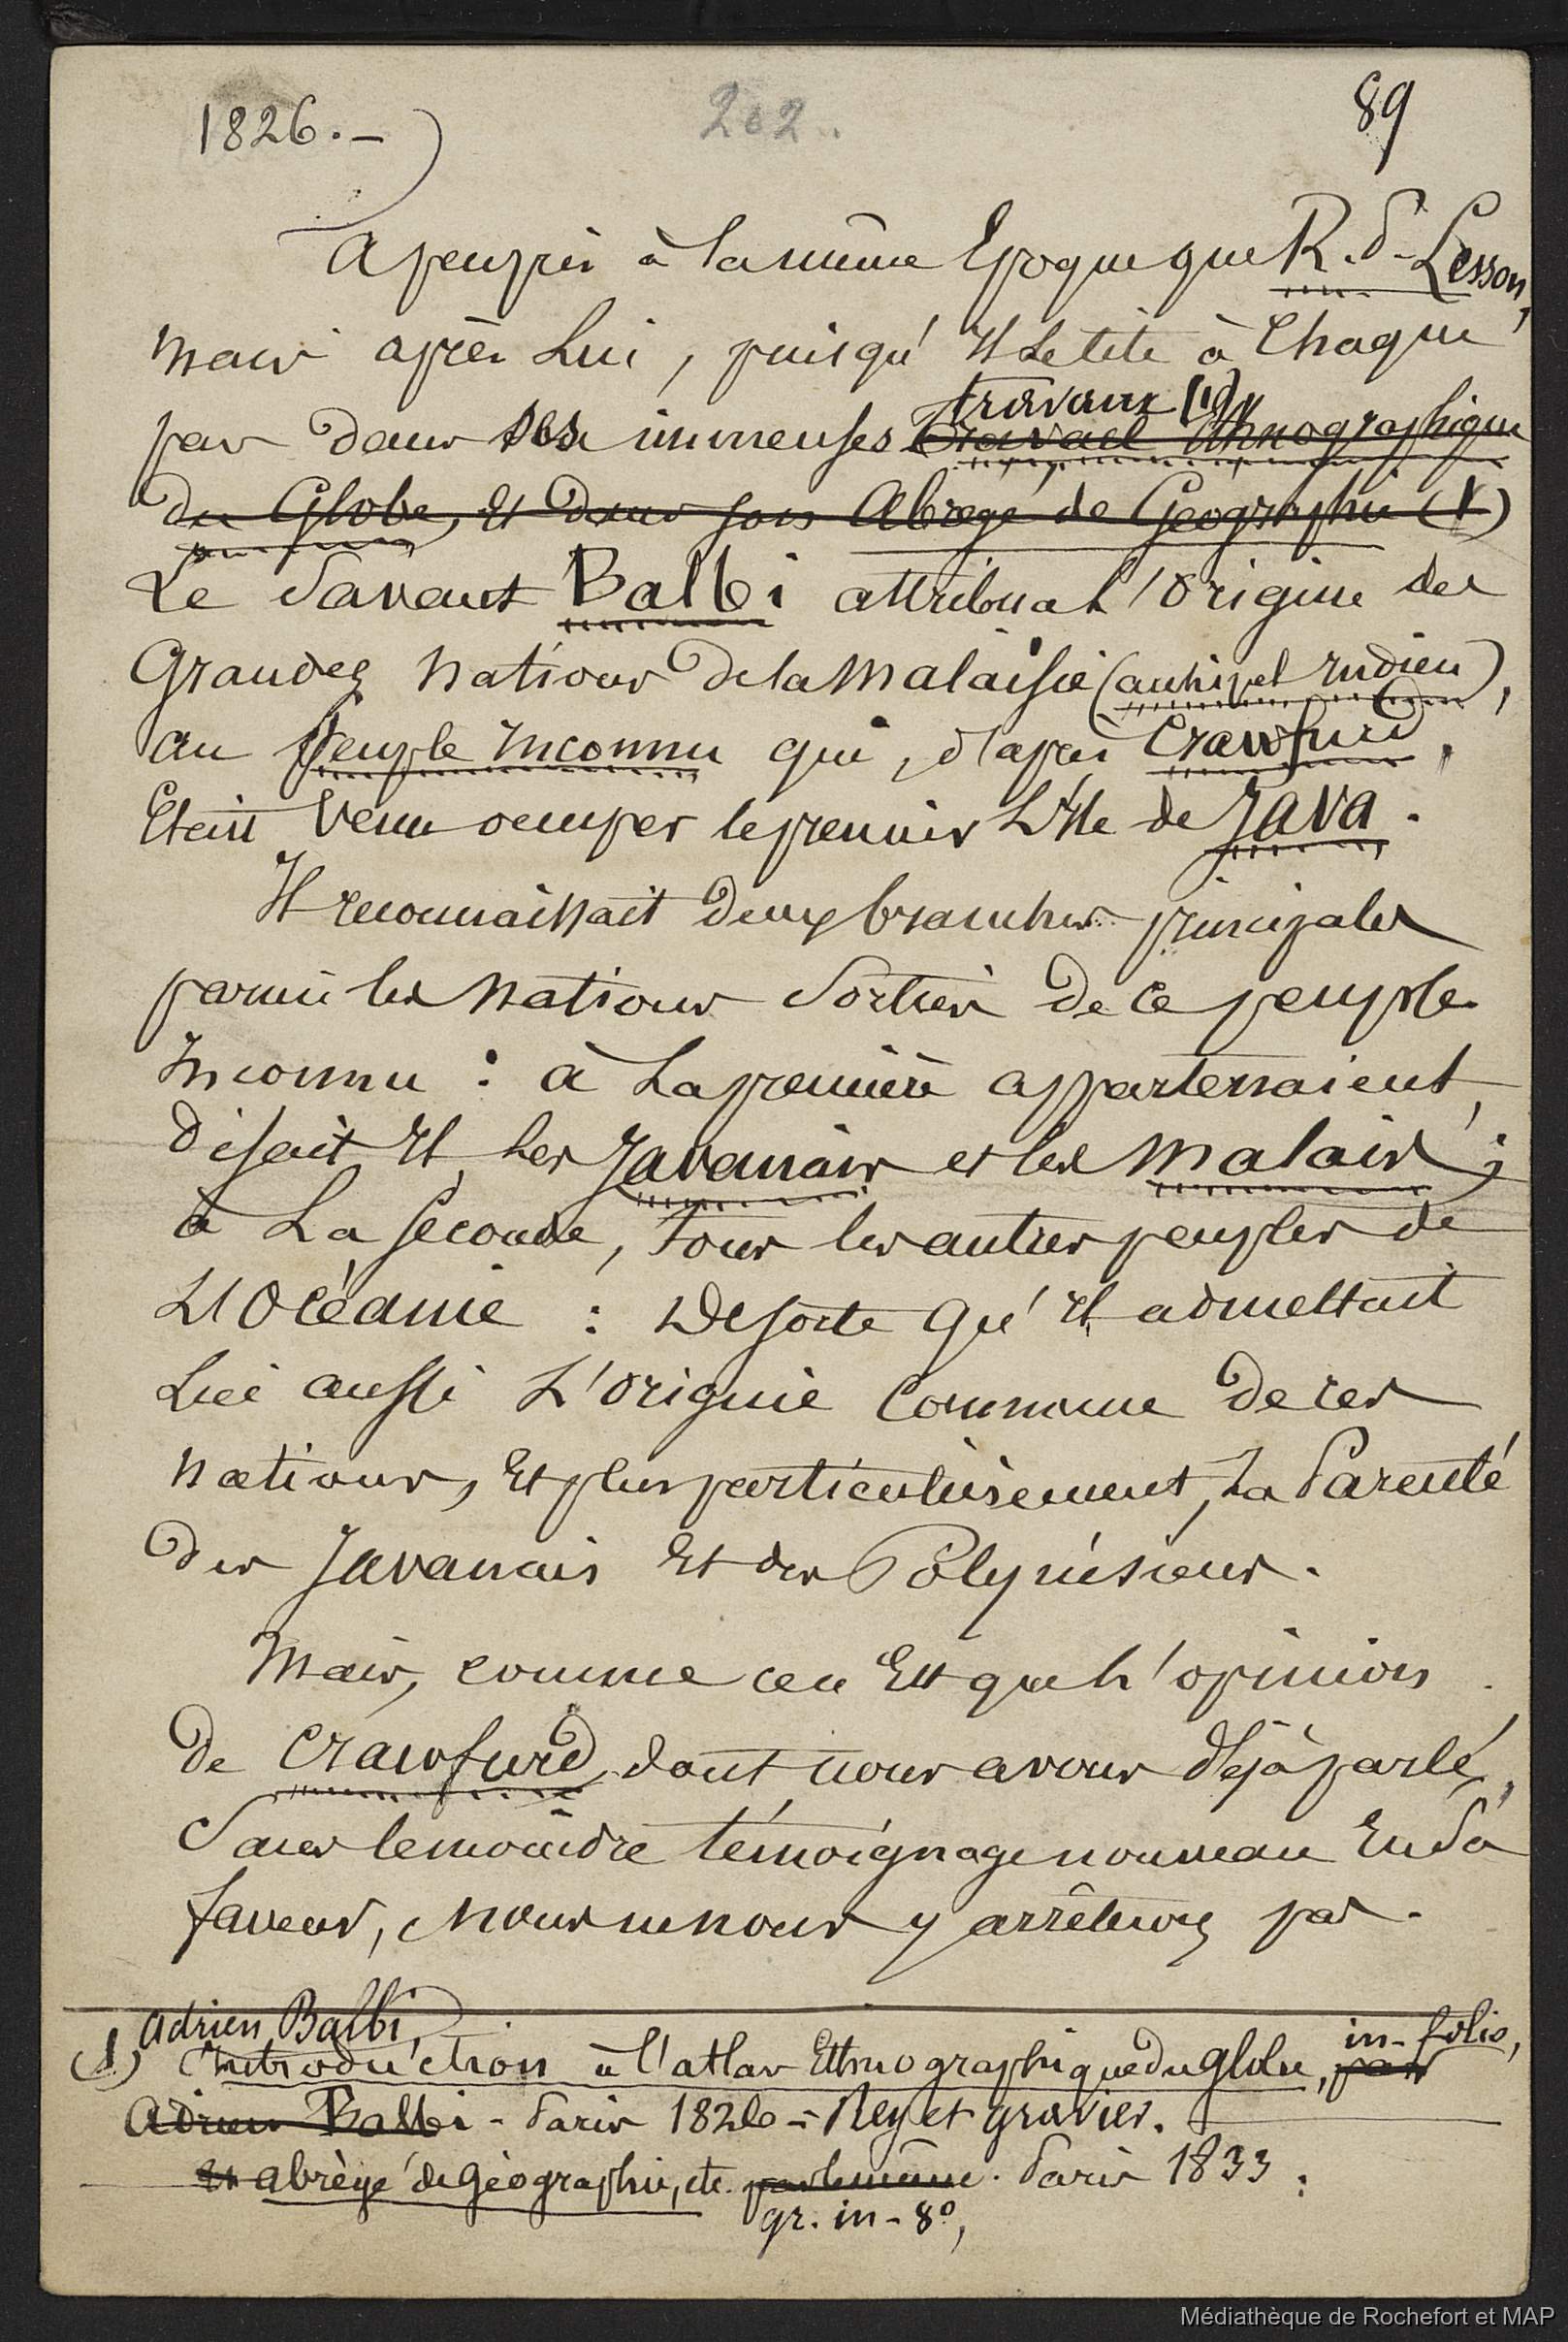 1826. —
202.
89
A peu près à la même Epoque que R. P. Lesson,
mais après Lui, puisqu'Il le cite à Chaque
pas dans ses immenses travaux (1),
travail Ethnographique
du Globe, Et dans son Abregé de Géographie (1)
Le Savant Balbi attribua L'Origine des
Grandes Nations de la Malaisie (archipel Indien),
au peuple Inconnu qui, d'après Crawfurd,
Etait Venu occuper le premier L'Ile de Java.
Il reconnaissait deux branches principales
parmi les Nations Sorties de ce peuple
Inconnu : à La première appartenaient,
disait Il, les Javanais et les Malais ;
à La Seconde, tous les autres peuples de
L'Océanie : De sorte qu'Il admettait
Lui aussi L'Origine Commune de ces
Nations, Et plus particulièrement, La Parenté
des Javanais Et des Polynésiens.
Mais, comme ce n'Est que L'opinion
de Crawfurd, dont nous avons déjà parlé,
Sans le moindre témoignage nouveau En Sa
faveur, Nous ne nous y arrêterons pas.
Adrien Balbi,
(1) Introduction à l'atlas Ethnographique du globe, in-folio,
par
Adrien Balbi - Paris 1826 - Rey et gravier.
Et abrégé de géographie, etc. par le même. Paris 1833 ;
gr. in-8°,
Médiathèque de Rochefort et MAP